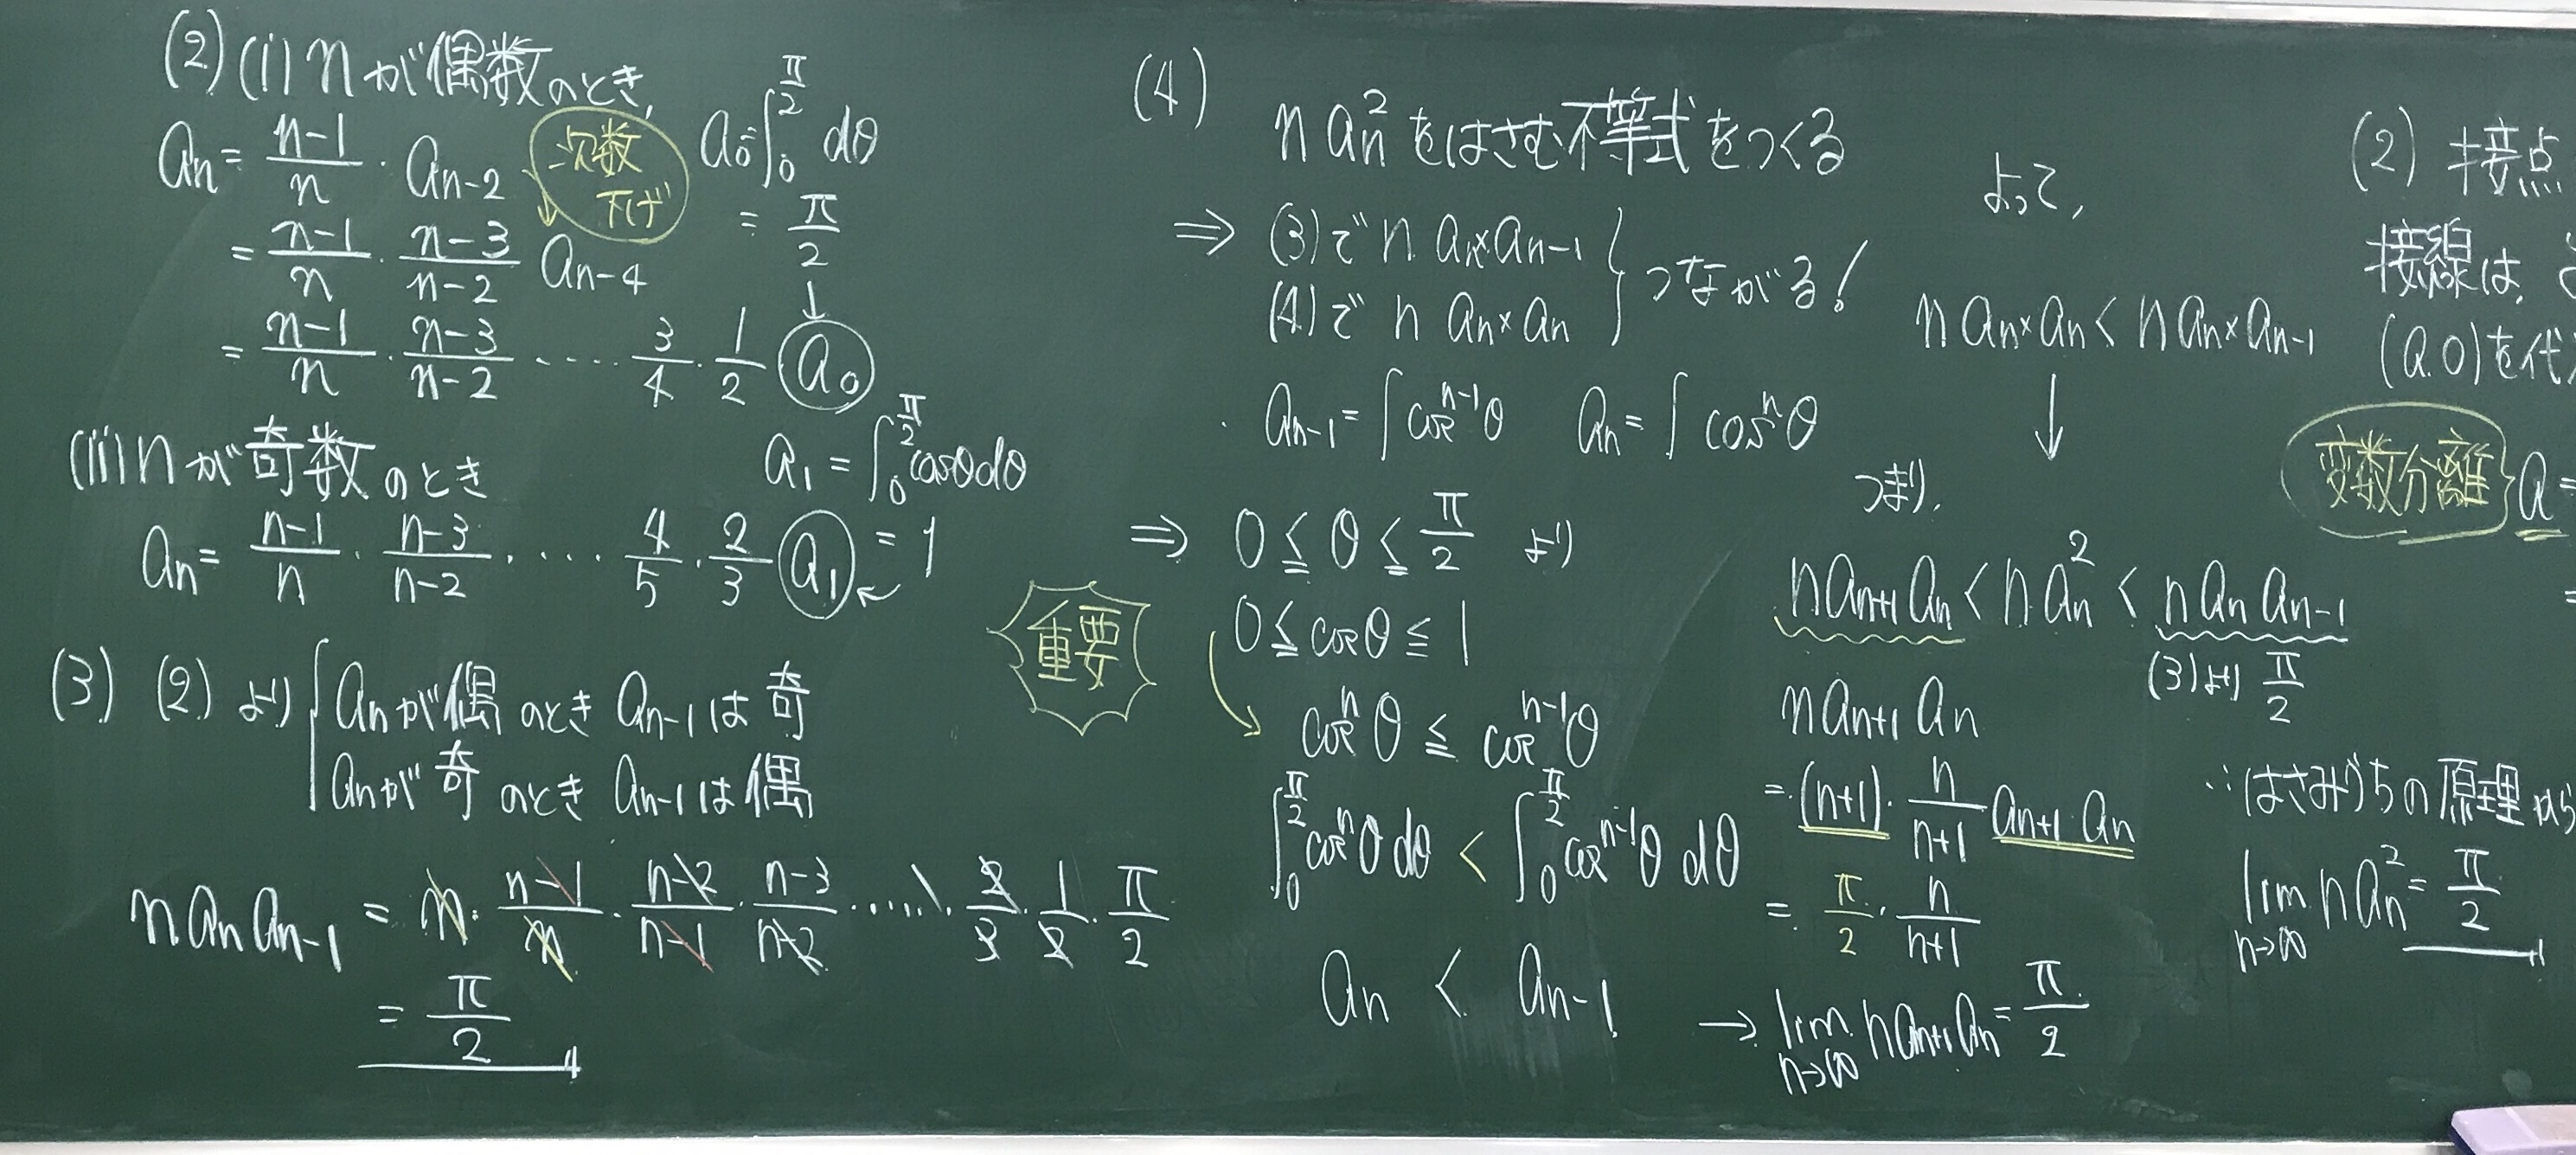 (2)(i) nが偶数のとき,
an = n-1/n · an-2
次数下げ
a0 = ∫[0→π/2] dθ
= π/2
↓
= n-1/n · n-3/n-2 an-4
= n-1/n · n-3/n-2 ····· 3/4 · 1/2 a0
(ii) nが奇数のとき
a1 = ∫[0→π/2] cosθdθ
= 1
an = n-1/n · n-3/n-2 · ···· 4/5 · 2/3 a1
(3) (2)より { anが偶のとき an-1は奇
anが奇のとき an-1は偶
n an an-1 = n · n-1/n · n-2/n-1 · n-3/n-2 ······ · 2/3 · 1/2 · π/2
= π/2
(4)
n an² をはさむ不等式をつくる
⇒ (3)で n an×an-1
(4)で n an×an
} つながる!
an-1 = ∫cosⁿ⁻¹θ an = ∫cosⁿθ
⇒ 0≦θ≦π/2 より
重要
0≦cosθ≦1
cosⁿθ≦cosⁿ⁻¹θ
∫[0→π/2] cosⁿθdθ < ∫[0→π/2] cosⁿ⁻¹θ dθ
an < an-1
よって,
n an×an < n an×an-1
↓
つまり,
n an+1 an < n an² < n an an-1
(3)より π/2
n an+1 an
= (n+1) · n/n+1 an+1 · an
= π/2 · n/n+1
→ lim n→∞ n an+1 an = π/2
∴はさみうちの原理から
lim n→∞ n an² = π/2
(2) 接点
接線は,
(a,0)を代
変数分離 } a =
=